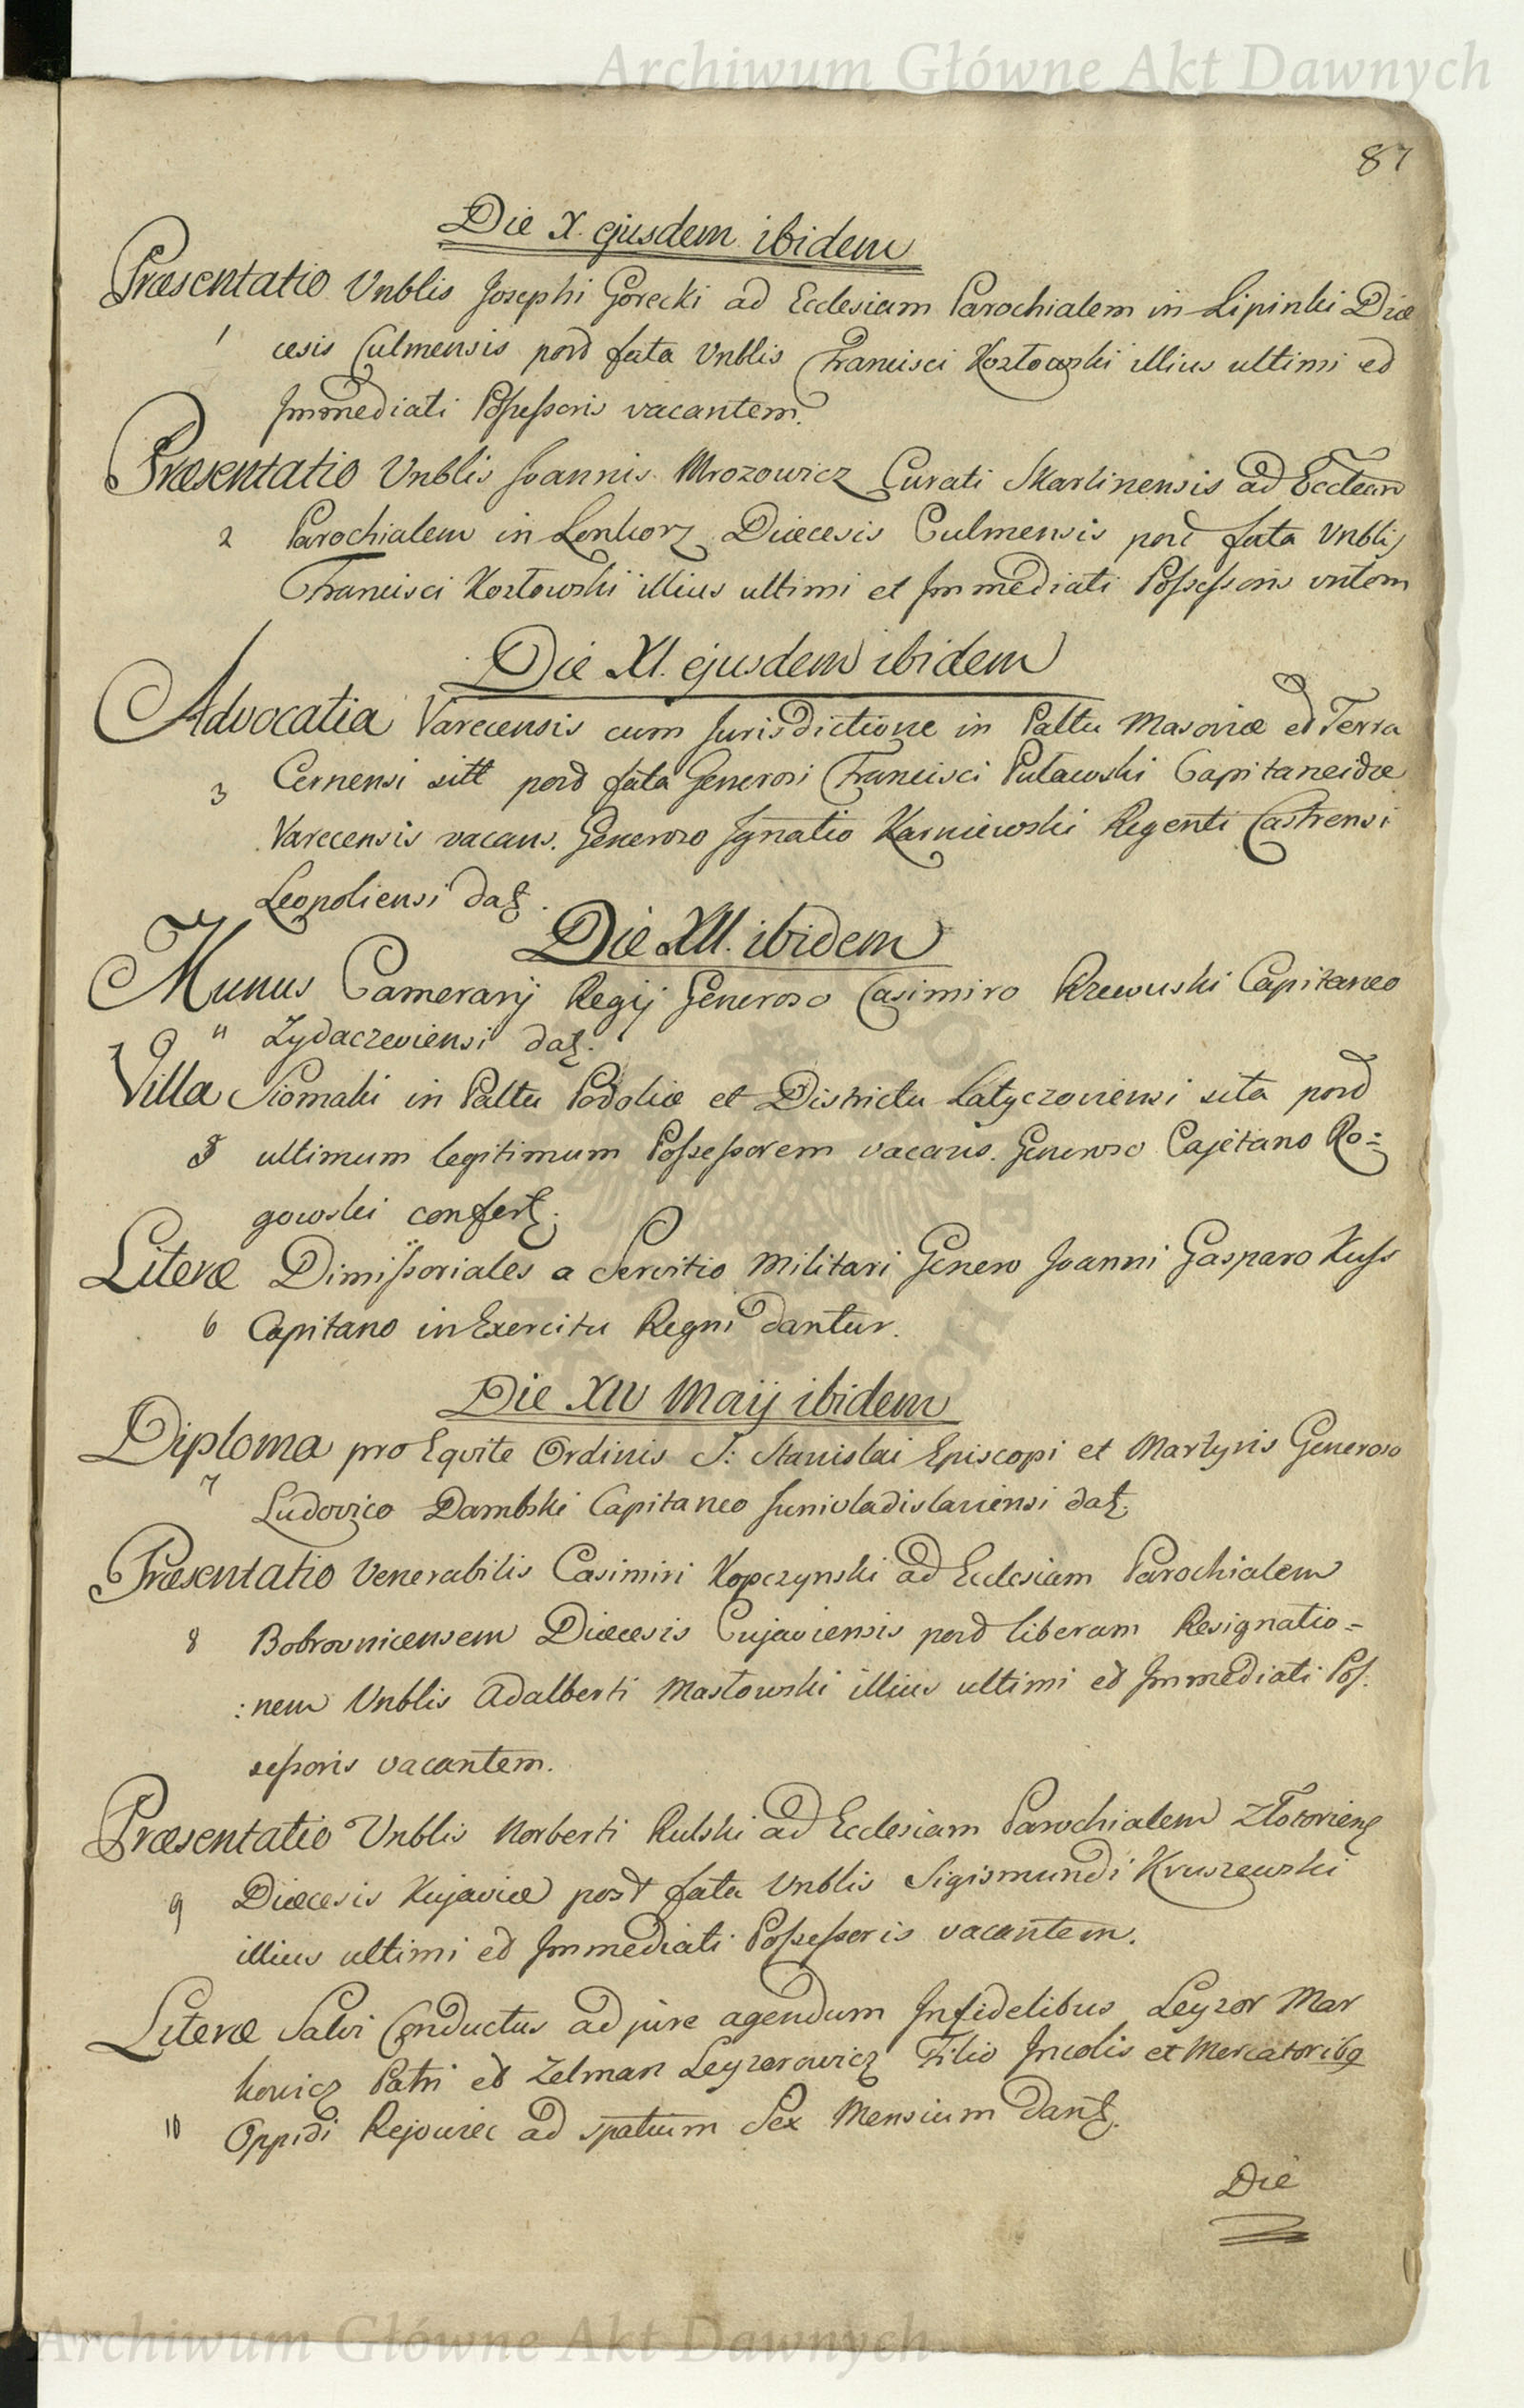 Archiwum Główne Akt Dawnych
87
Die X. ejusdem ibidem
Præsentatio Vnblis Josephi Gorecki ad Ecclesiam Parochialem in Lipinki Diæ
1 cesis Culmensis post fata Vnblis Francisci Kozłowski illius ultimi et
Immediati Possessoris vacantem.
Præsentatio Vnblis Joannis Mrozowicz Curati Skarlinensis ad Eccleam
2 Parochialem in Lonkorz Diæcesis Culmensis post fata Vnblis
Francisci Kozłowski illius ultimi et Immediati Possessoris vntem
Die XI. ejusdem ibidem
Advocatia Varecensis cum Jurisdictione in Pattu Masoviæ et Terra
3 Cernensi sitt post fata Generosi Francisci Puławski Capitaneidæ
Varecensis vacans. Generoso Ignatio Karniewski Regenti Castrensi
Leopoliensi datz.
Die XII. ibidem
Munus Camerarij Regij Generoso Casimiro Rzewuski Capitaneo
4 Zydaczeviensi datz.
Villa Siomaki in Pattu Podoliæ et Districtu Latyczoviensi sita post
5 ultimum legitimum Possessorem vacans. Generoso Cajetano Ro=
gowski confertz.
Literæ Dimissoriales a Servitio Militari Genero Joanni Gasparo Kuss
6 Capitano in Exercitu Regni dantur.
Die XIV Maij ibidem
Diploma pro Equite Ordinis S: Stanislai Episcopi et Martyris Generoso
7 Ludovico Dambski Capitaneo Junivladislaviensi datz.
Præsentatio Venerabilis Casimiri Kopczynski ad Ecclesiam Parochialem
8 Bobrovnicensem Diæcesis Cujaviensis post liberam Resignatio=
:nem Vnblis Adalberti Masłowski illius ultimi et Immediati Pos.
sessoris vacantem.
Præsentatio Vnblis Norberti Rulski ad Ecclesiam Parochialem Złotorienz
9 Diæcesis Kujaviæ post fata Vnblis Sigismundi Kruszewski
illius ultimi et Immediati Possessoris vacantem.
Literæ Salvi Conductus ad jure agendum Infidelibus Leyzor Mar
kowicz Patri et Zelman Leyzerowicz Filio Incolis et Mercatoribq
10 Oppidi Rejowiec ad spatium Sex Mensium dantz.
Die
Archiwum Główne Akt Dawnych